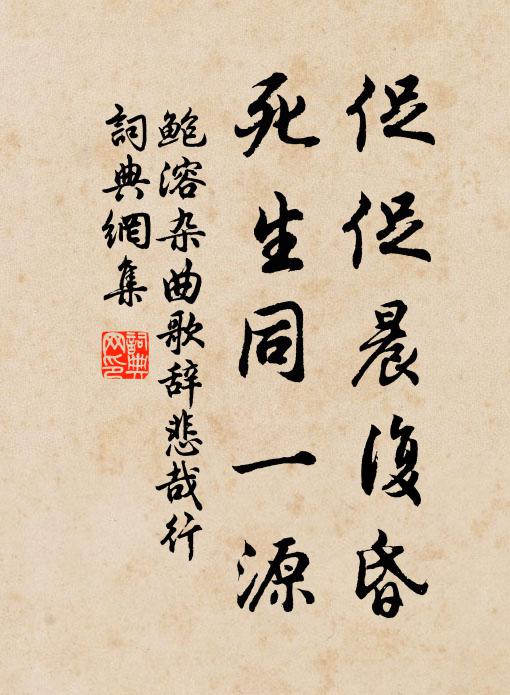 促促晨復昏
死生同一源
鲍溶杂曲歌辞悲哉行
詞典網集
詞典網印